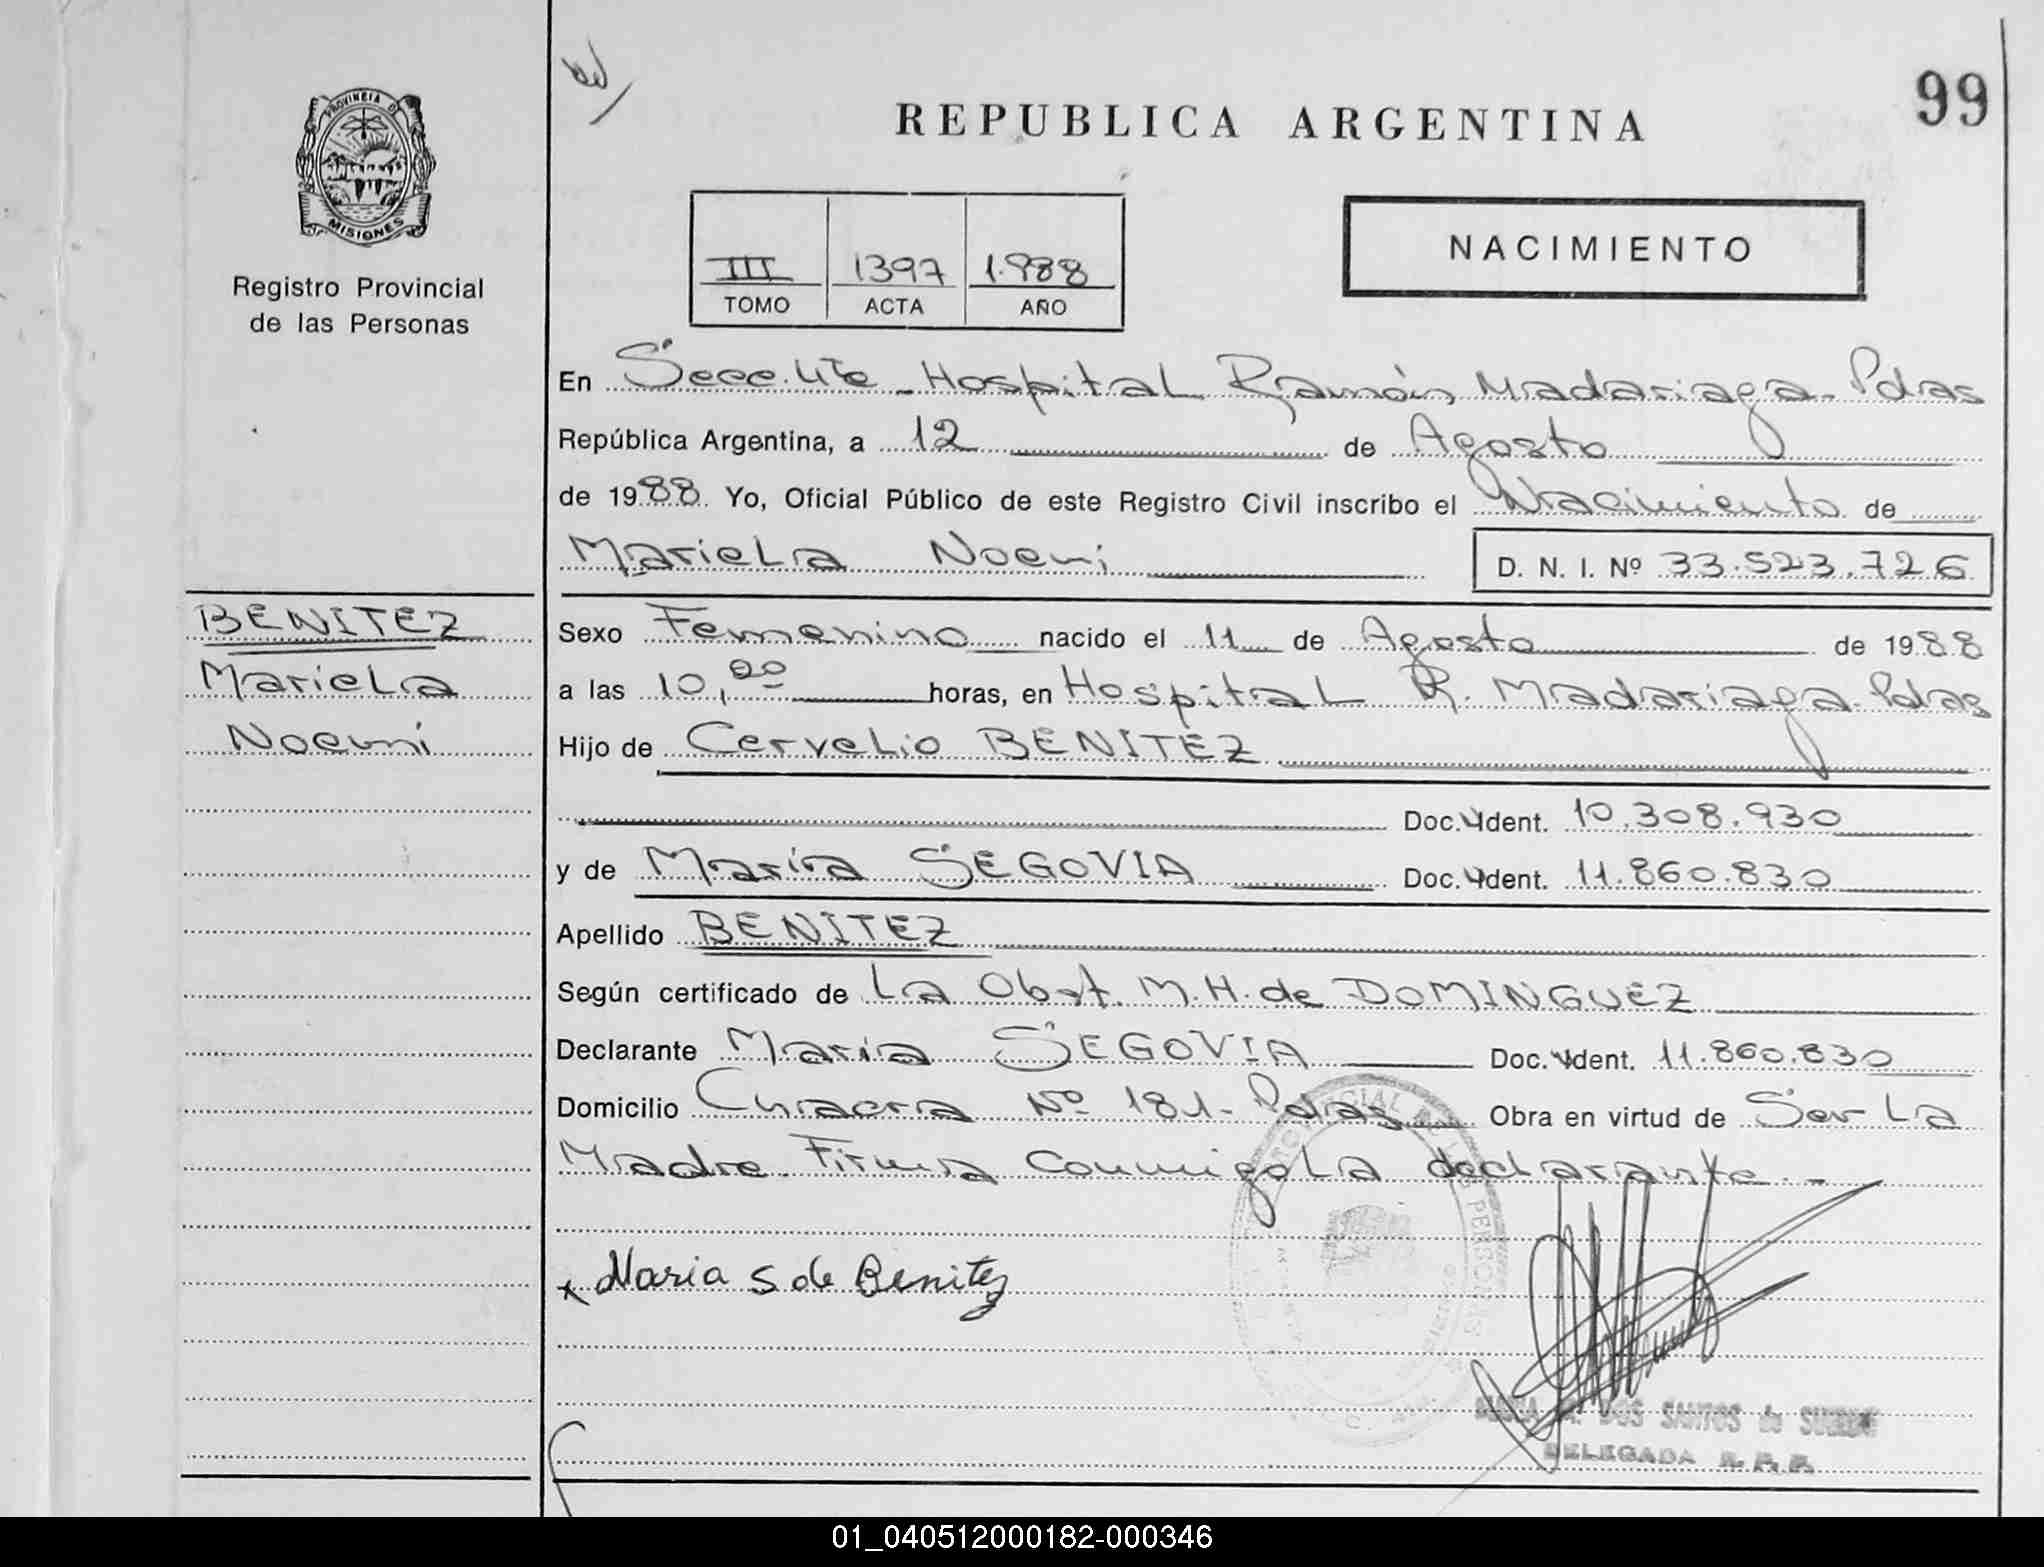 PROVINCIA D
MISIONES
Registro Provincial
de las Personas
REPUBLICA ARGENTINA
99
III 1397 1.988
TOMO ACTA AÑO
NACIMIENTO
En Secc. 4ta - Hospital Ramón Madariaga - Pdas
República Argentina, a 12 de Agosto
de 1988. Yo, Oficial Público de este Registro Civil inscribo el Nacimiento de
Mariela Noemi D. N. I. Nº 33.523.726
BENITEZ
Mariela
Noemí
Sexo Femenino nacido el 11 de Agosto de 1988
a las 10,00 horas, en Hospital R. Madariaga - Pdas
Hijo de Cervelio BENITEZ
Doc. Ident. 10.308.930
y de María SEGOVIA Doc. Ident. 11.860.830
Apellido BENITEZ
Según certificado de La Obst. M.H. de DOMINGUEZ
Declarante María SEGOVIA Doc. Ident. 11.860.830
Domicilio Chacra Nº 181 - Pdas Obra en virtud de Ser La
Madre Firma Conmigo La declarante. -
x Maria S de Benitez
DOS SANTOS de
DELEGADA R. P. P.
01_040512000182-000346